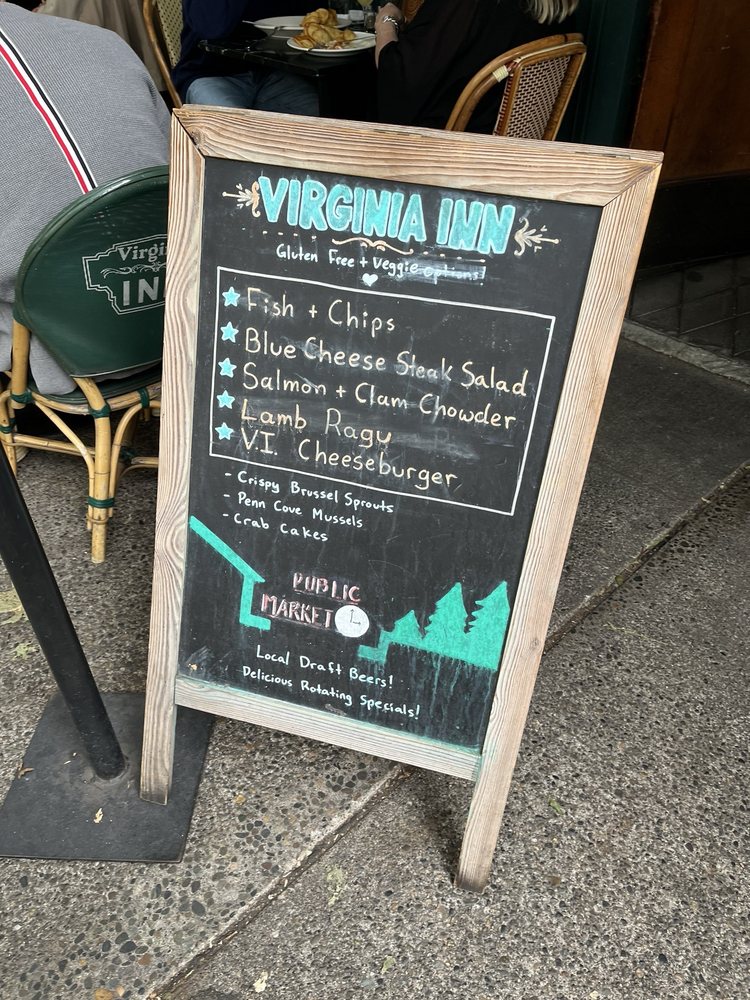 VIRGINIA INN
Gluten Free + Veggie options!
Fish + Chips
Blue Cheese Steak Salad
Salmon + Clam Chowder
Lamb Ragu
V.I. Cheeseburger
- Crispy Brussel Sprouts
- Penn Cove Mussels
- Crab Cakes
PUBLIC
MARKET
Local Draft Beers!
Delicious Rotating Specials!
Virgin
INN